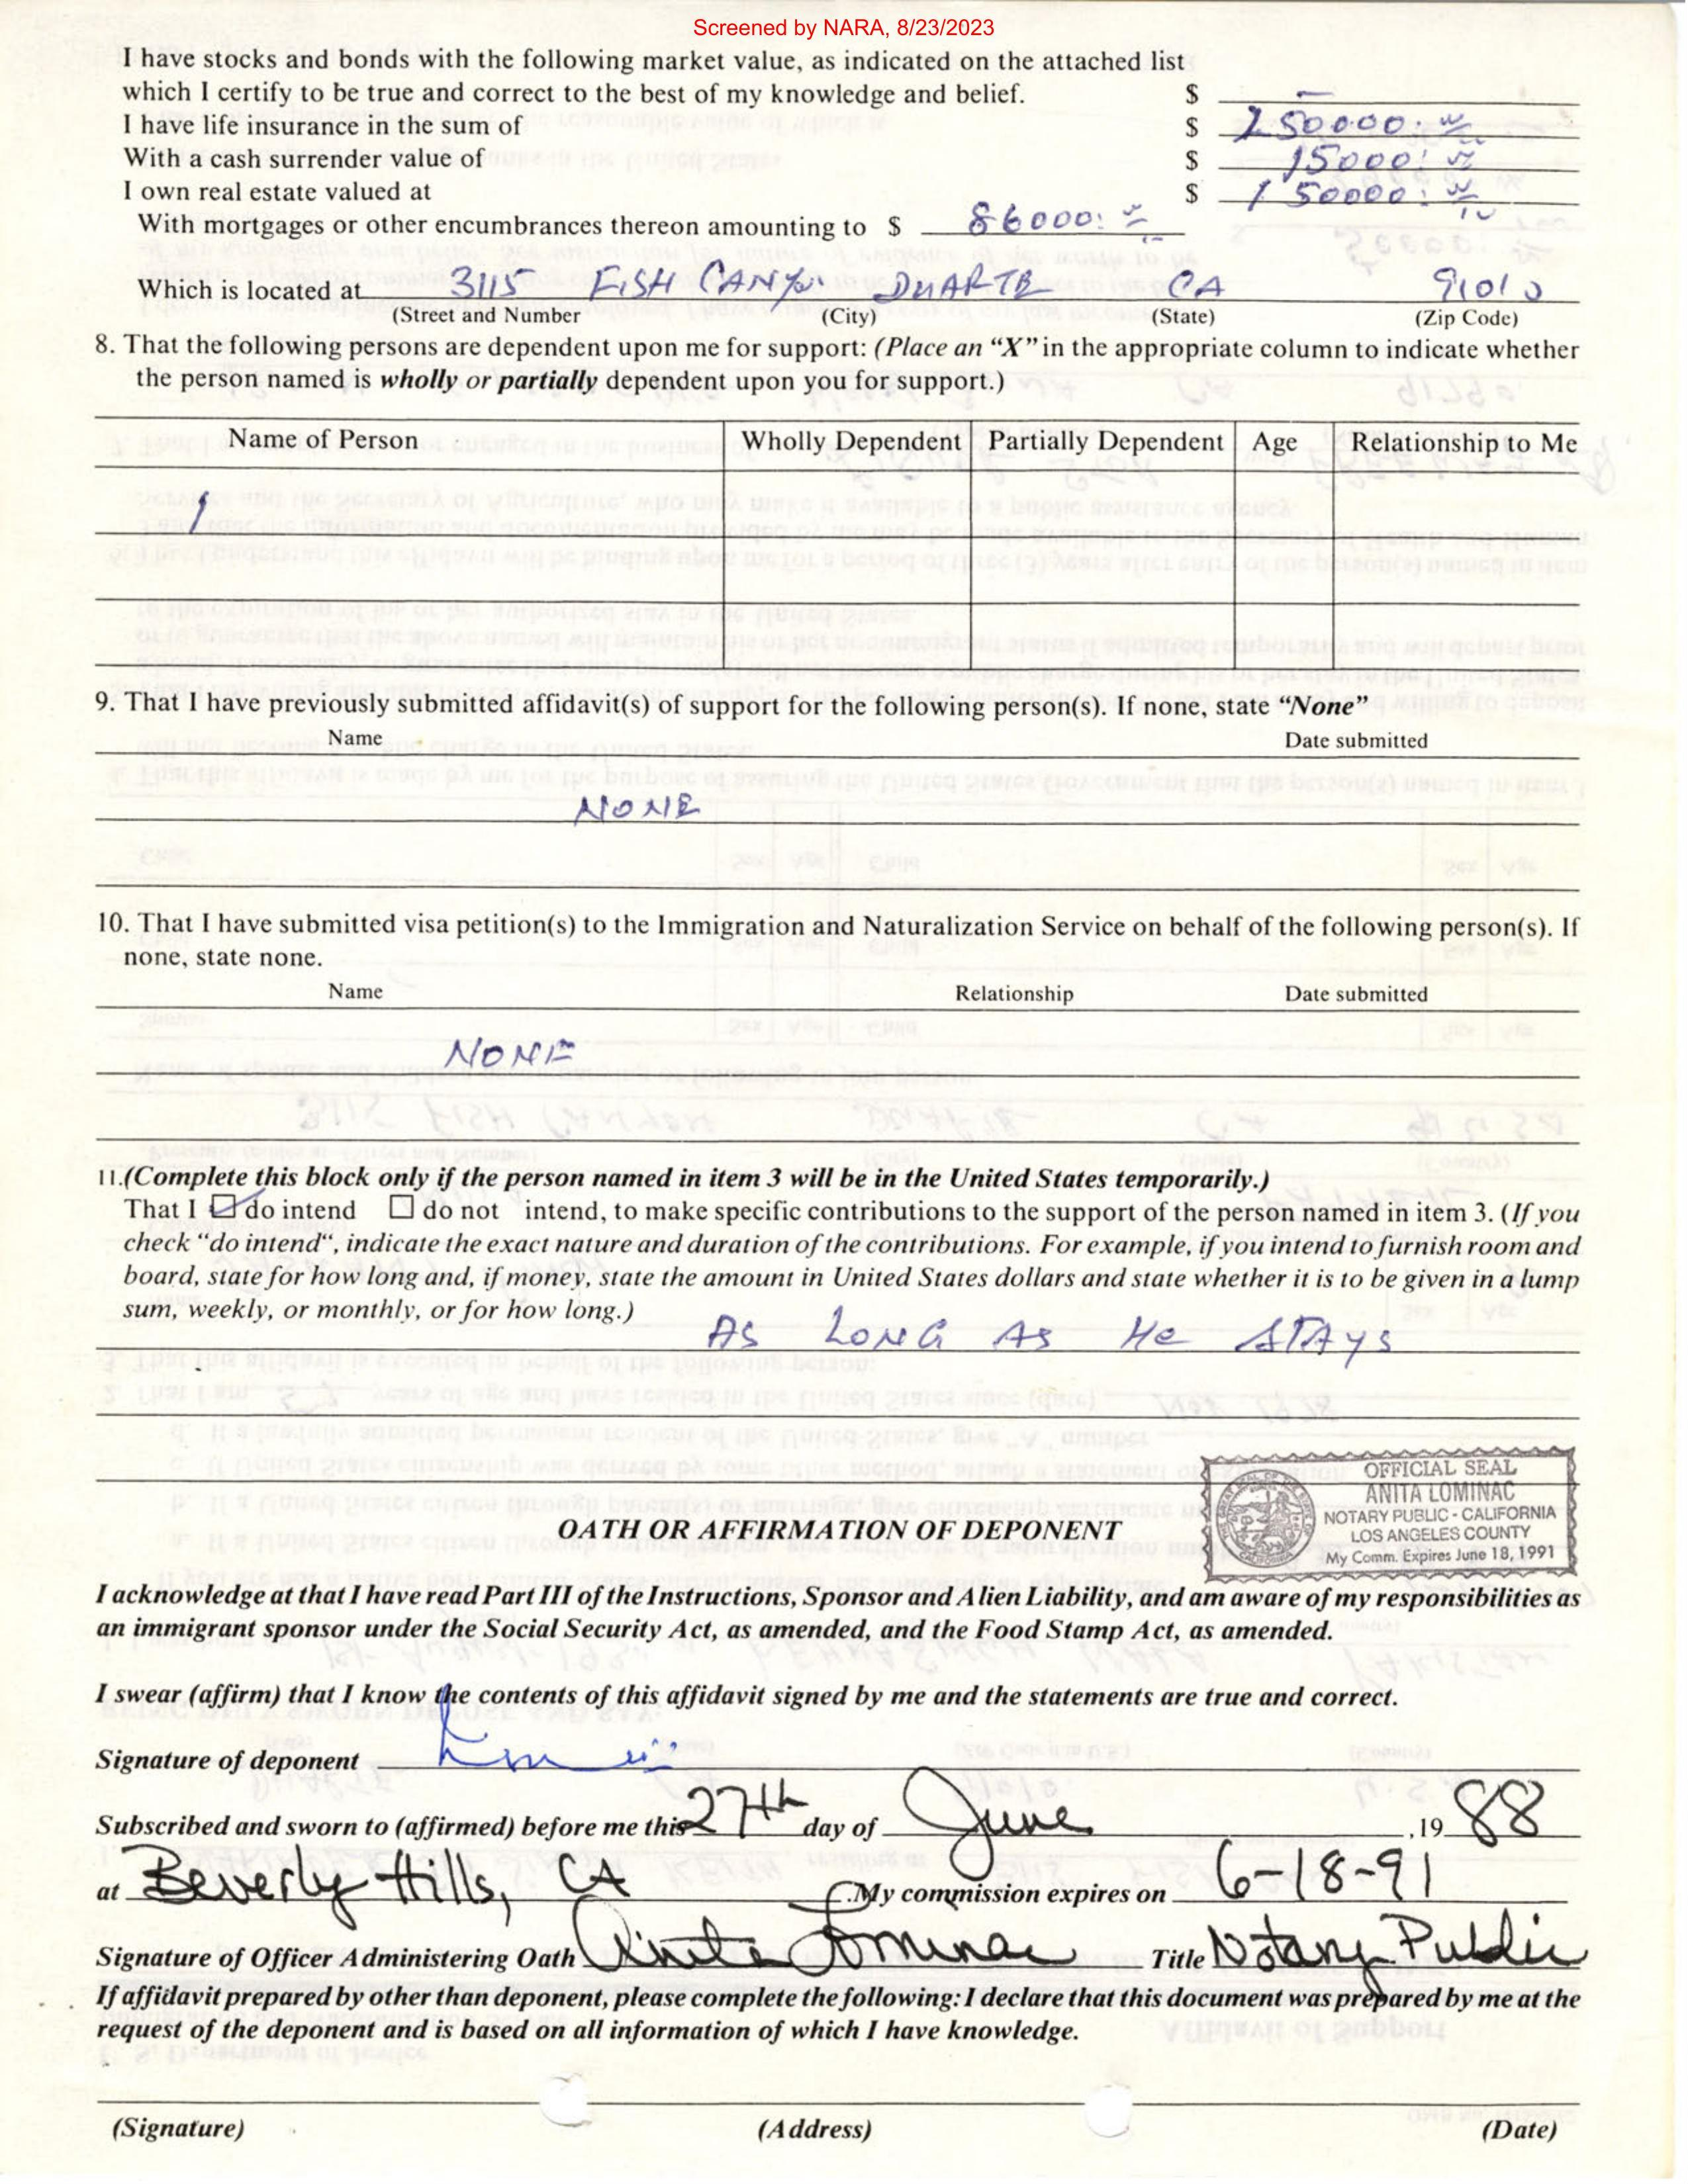 Screened by NARA, 8/23/2023
I have stocks and bonds with the following market value, as indicated on the attached list
which I certify to be true and correct to the best of my knowledge and belief. $ —
I have life insurance in the sum of $ 250000.
With a cash surrender value of $ 15000.
I own real estate valued at $ 150000.
With mortgages or other encumbrances thereon amounting to $ 86000.
Which is located at 3115 FISH CANYON DUARTE CA 91010
(Street and Number (City) (State) (Zip Code)
8. That the following persons are dependent upon me for support: (Place an “X” in the appropriate column to indicate whether
the person named is wholly or partially dependent upon you for support.)
Name of Person Wholly Dependent Partially Dependent Age Relationship to Me
1
9. That I have previously submitted affidavit(s) of support for the following person(s). If none, state “None”
Name Date submitted
NONE
10. That I have submitted visa petition(s) to the Immigration and Naturalization Service on behalf of the following person(s). If
none, state none.
Name Relationship Date submitted
NONE
11.(Complete this block only if the person named in item 3 will be in the United States temporarily.)
That I ☑ do intend ☐ do not intend, to make specific contributions to the support of the person named in item 3. (If you
check “do intend“, indicate the exact nature and duration of the contributions. For example, if you intend to furnish room and
board, state for how long and, if money, state the amount in United States dollars and state whether it is to be given in a lump
sum, weekly, or monthly, or for how long.)
AS LONG AS He STAYS
OFFICIAL SEAL
ANITA LOMINAC
NOTARY PUBLIC - CALIFORNIA
LOS ANGELES COUNTY
My Comm. Expires June 18, 1991
OATH OR AFFIRMATION OF DEPONENT
I acknowledge at that I have read Part III of the Instructions, Sponsor and Alien Liability, and am aware of my responsibilities as
an immigrant sponsor under the Social Security Act, as amended, and the Food Stamp Act, as amended.
I swear (affirm) that I know the contents of this affidavit signed by me and the statements are true and correct.
Signature of deponent
Subscribed and sworn to (affirmed) before me this 27th day of June ,19 88
at Beverly Hills, CA .My commission expires on 6-18-91
Signature of Officer Administering Oath Anita Lominac Title Notary Public
If affidavit prepared by other than deponent, please complete the following: I declare that this document was prepared by me at the
request of the deponent and is based on all information of which I have knowledge.
(Signature) (Address) (Date)